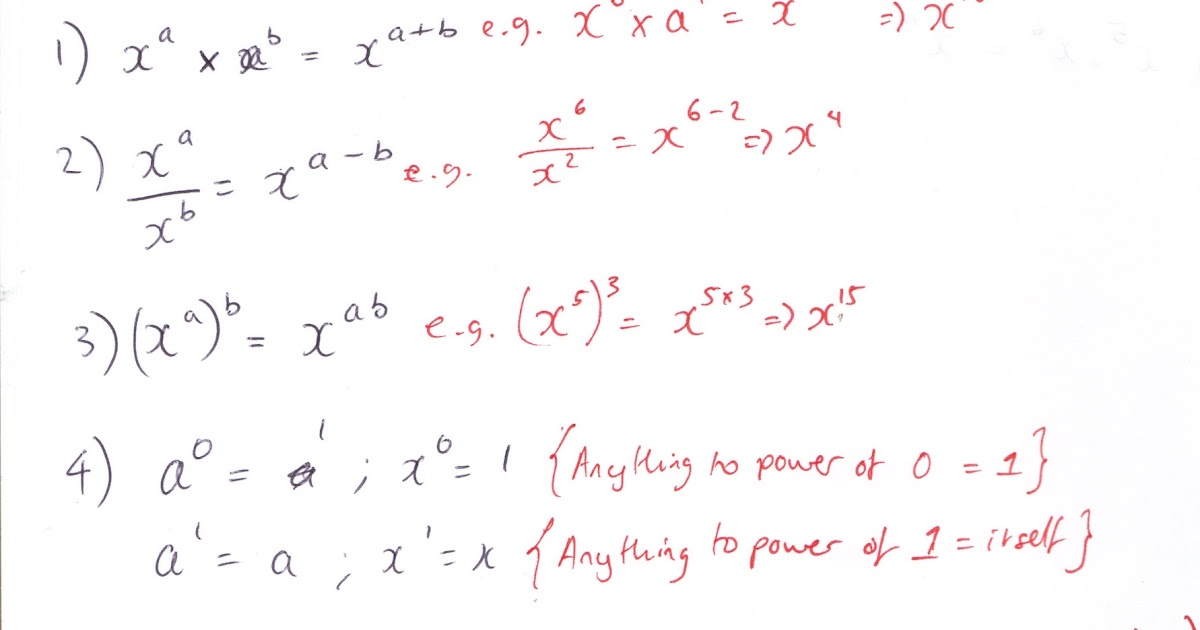 1) xᵃ × xᵇ = xᵃ⁺ᵇ e.g. x × a = x => x
2) xᵃ/xᵇ = xᵃ⁻ᵇ e.g. x⁶/x² = x⁶⁻² => x⁴
3) (xᵃ)ᵇ = xᵃᵇ e.g. (x⁵)³ = x⁵ˣ³ => x¹⁵
4) a⁰ = 1 ; x⁰ = 1 {Anything to power of 0 = 1}
a¹ = a ; x¹ = x {Anything to power of 1 = itself}